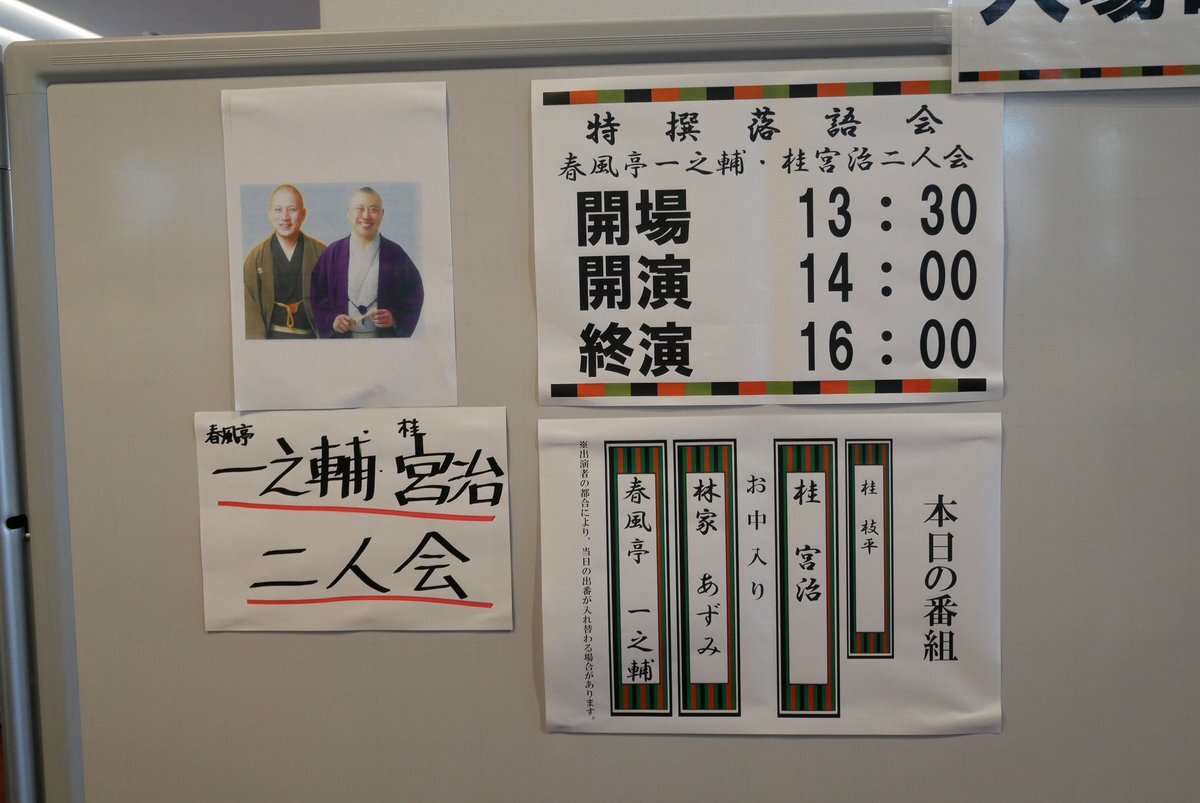 特撰落語会
春風亭一之輔・桂宮治二人会
開場 13：30
開演 14：00
終演 16：00
春風亭 桂
一之輔・宮治
二人会
本日の番組
桂 枝平
桂 宮治
お中入り
林家 あずみ
春風亭 一之輔
※出演者の都合により、当日の出番が入れ替わる場合があります。